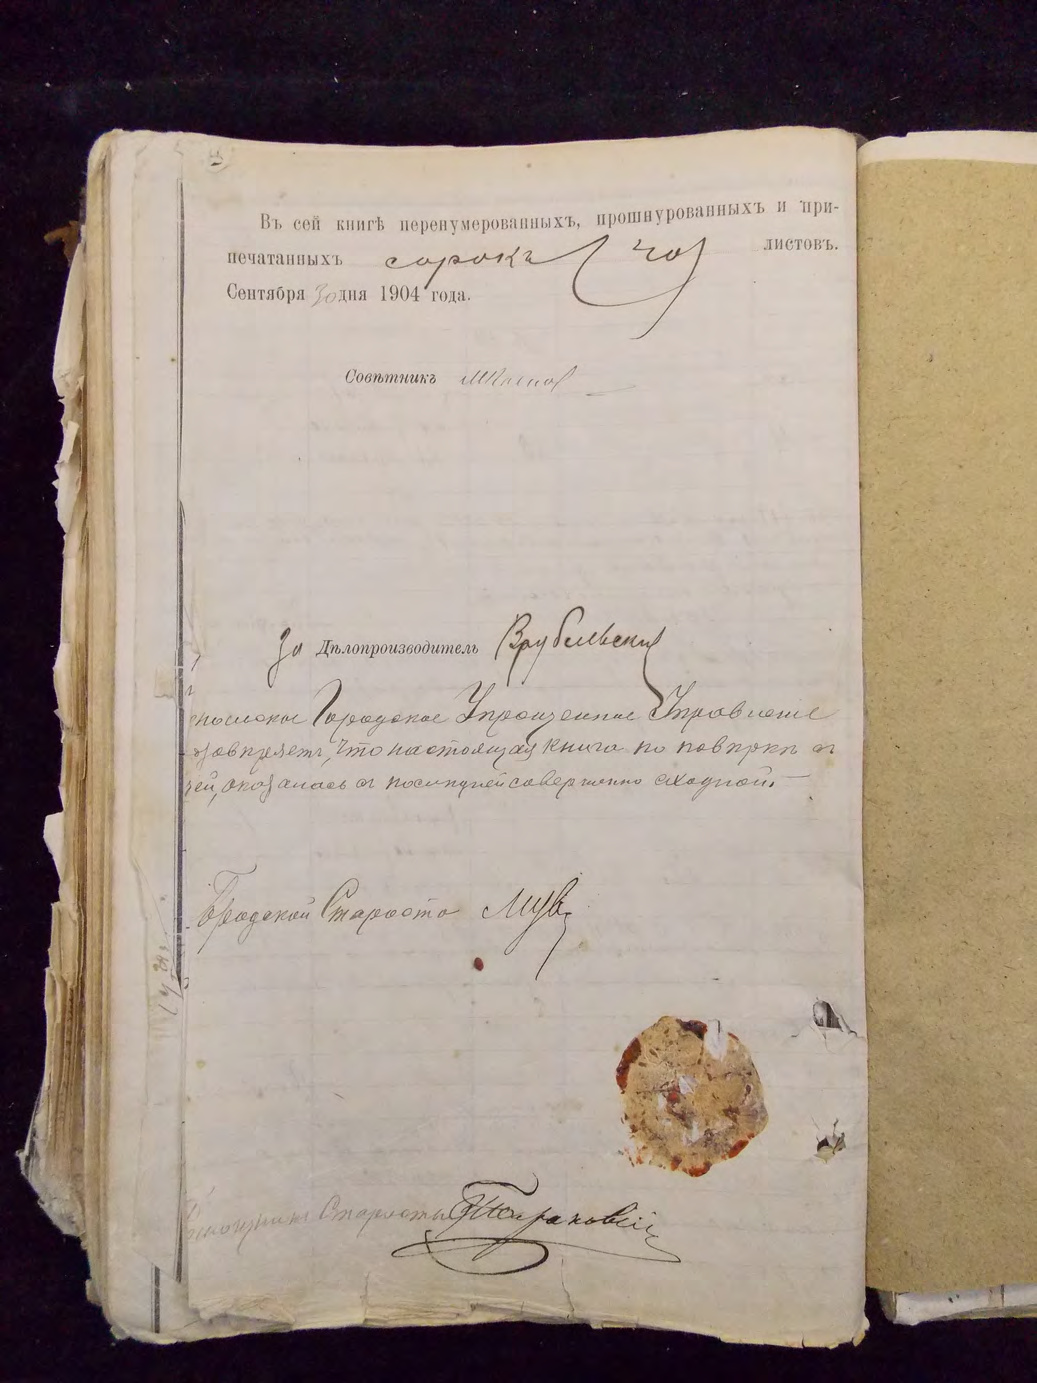 Въ сей книгѣ перенумерованныхъ, прошнурованныхъ и при-
печатанныхъ сорокъ (40) листовъ.
Сентября 30 дня 1904 года.
Совѣтникъ
За Дѣлопроизводитель Врубельский
Городское Упрощенное Управление
что настоящая книга по повѣрке съ
ей, оказалась съ послѣдней совершенно сходной.
Городской Староста
Помощникъ Старосты